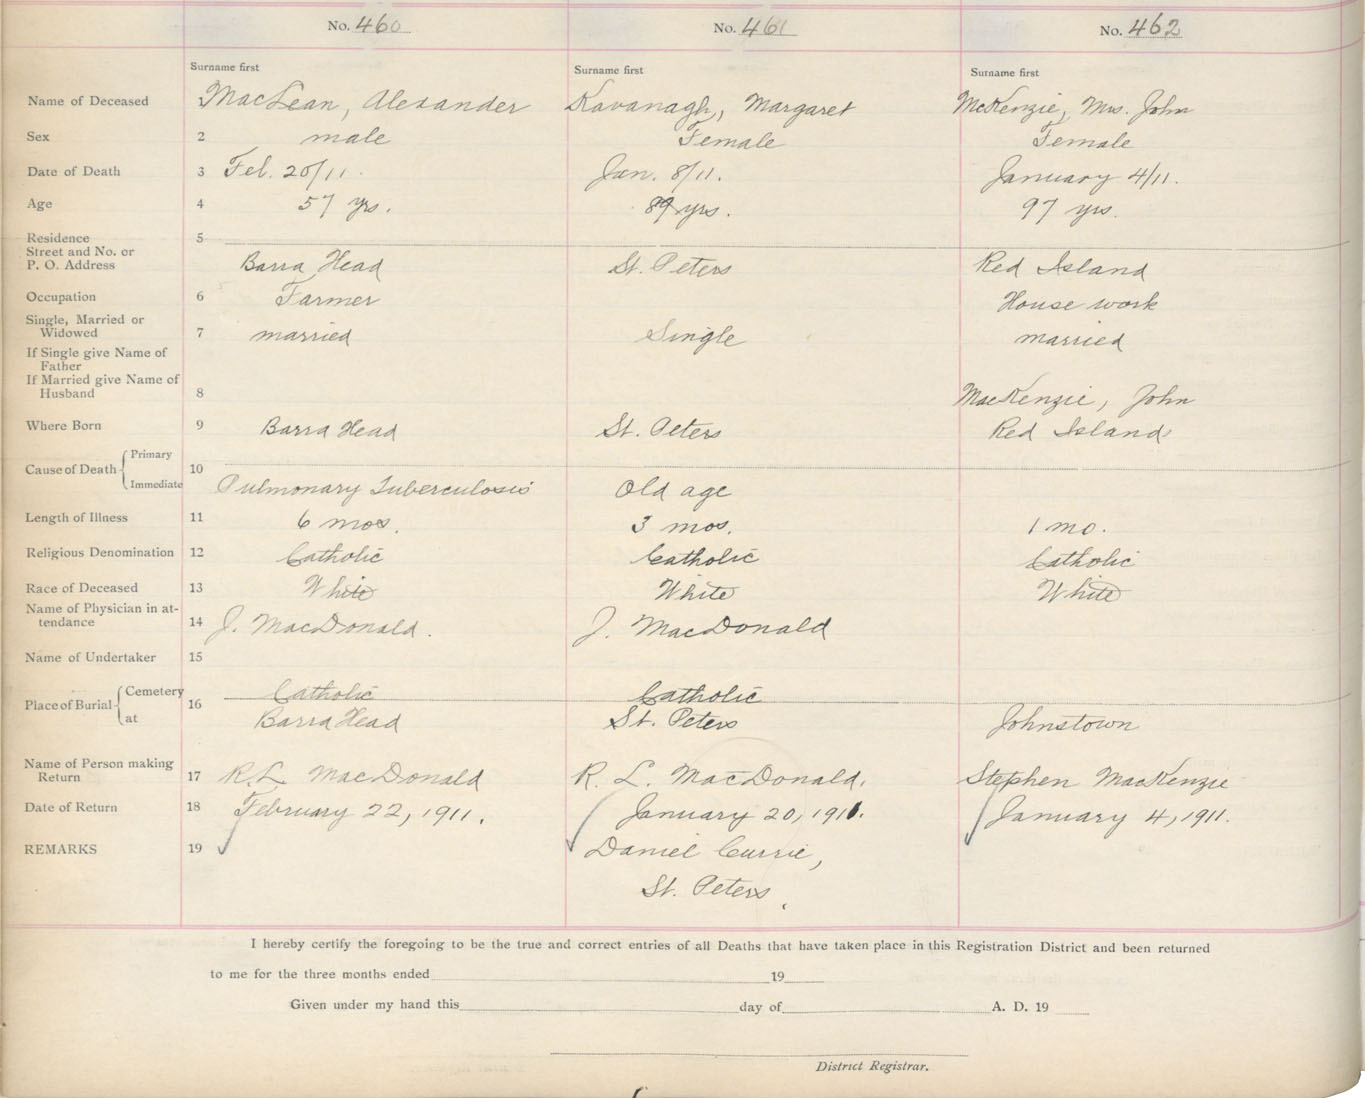 No. 460 No. 461 No. 462
Surname first Surname first Surname first
Name of Deceased 1 MacLean, Alexander Kavanagh, Margaret McKenzie, Mrs. John
Sex 2 male Female Female
Date of Death 3 Feb. 20/11. Jan. 8/11. January 4/11.
Age 4 57 yrs. 89 yrs. 97 yrs.
Residence 5
Street and No. or
P. O. Address Barra Head St. Peters Red Island
Occupation 6 Farmer House work
Single, Married or
Widowed 7 married Single married
If Single give Name of
Father
If Married give Name of
Husband 8 MacKenzie, John
Where Born 9 Barra Head St. Peters Red Island
Cause of Death Primary 10
Immediate Pulmonary Tuberculosis Old age
Length of Illness 11 6 mos. 3 mos. 1 mo.
Religious Denomination 12 Catholic Catholic Catholic
Race of Deceased 13 White White White
Name of Physician in at-
tendance 14 J. MacDonald. J. MacDonald
Name of Undertaker 15
Place of Burial Cemetery 16 Catholic Catholic
at Barra Head St. Peters Johnstown
Name of Person making
Return 17 R. L. MacDonald R. L. MacDonald. Stephen MacKenzie
Date of Return 18 February 22, 1911. January 20, 1911. January 4, 1911.
REMARKS 19 Daniel Currie,
St. Peters
I hereby certify the foregoing to be the true and correct entries of all Deaths that have taken place in this Registration District and been returned
to me for the three months ended 19
Given under my hand this day of A. D. 19
District Registrar.